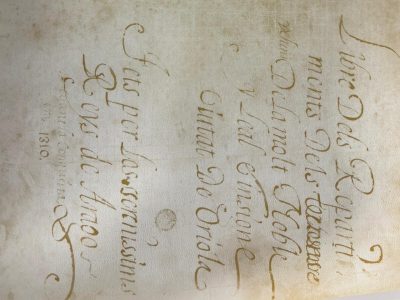 Llibre Dels Repartì
ments Dels
De la molt Noble
y Leal
Ciutat De Oriola
Fets per los serenissims
Reys de Arago
1310.